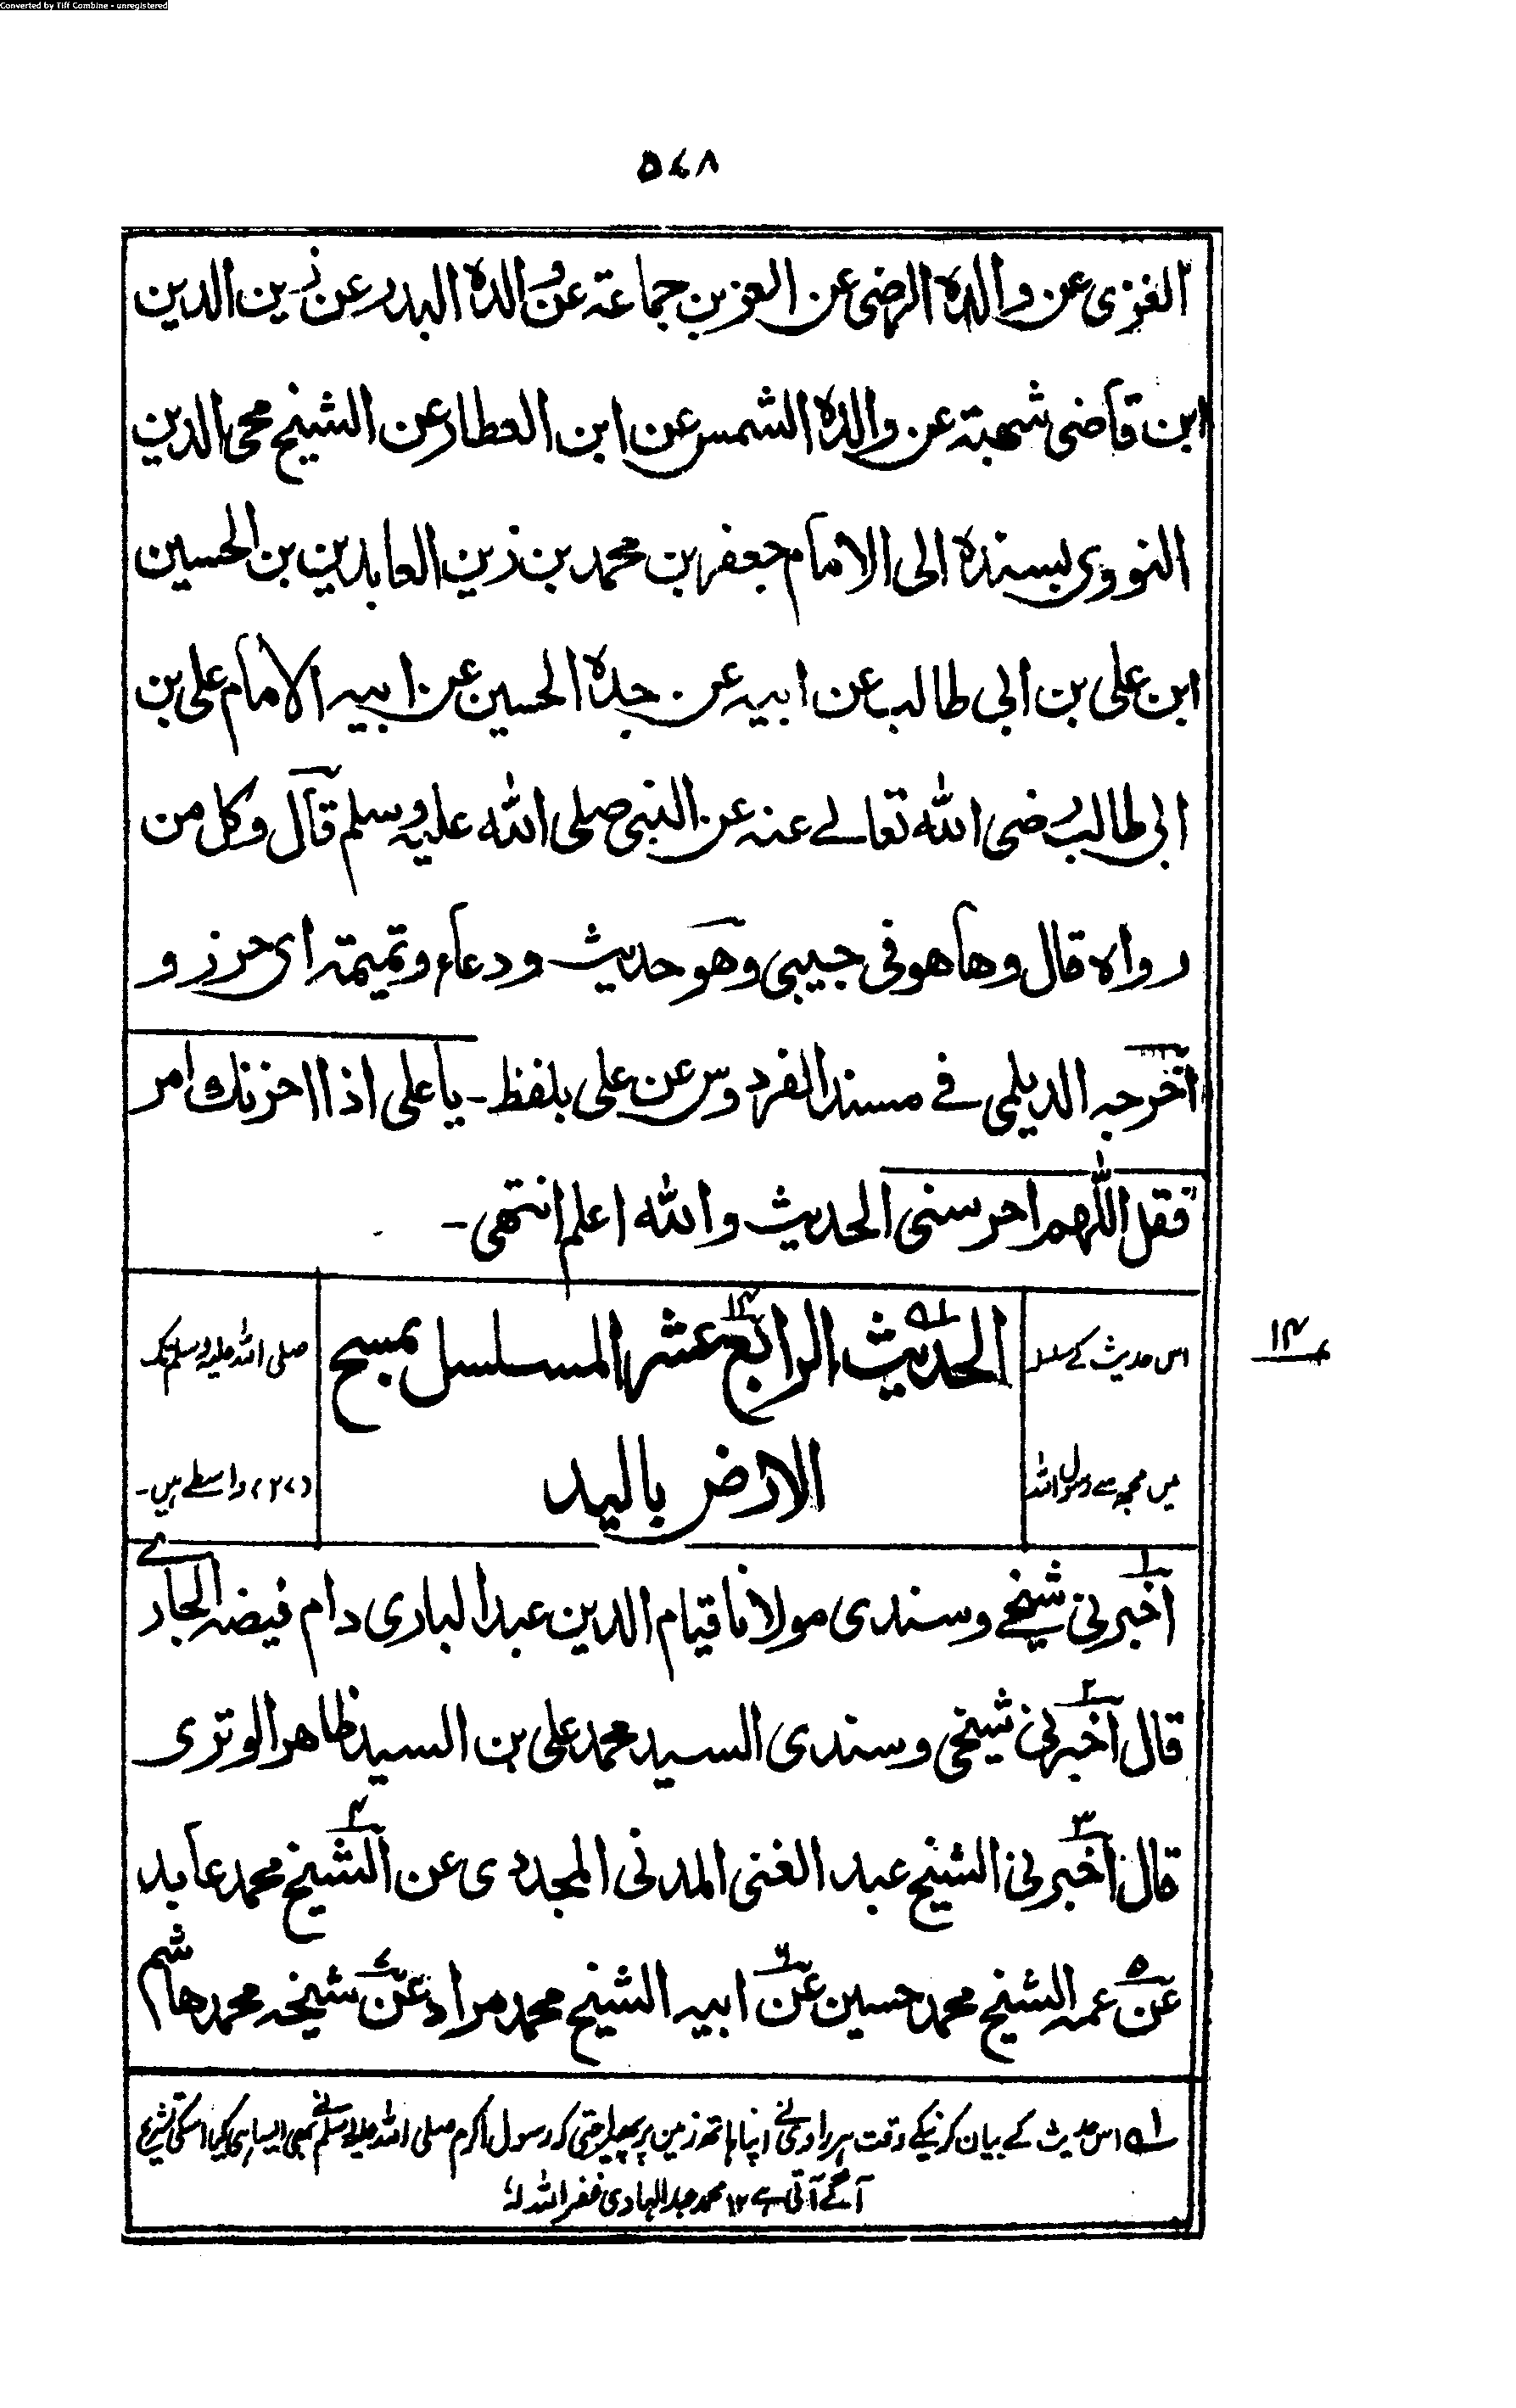 Converted by Tiff Combine - unregistered
٥٤٨
الغزی عن والدہ الرضی عن العز بن جماعۃ عن والدہ البدر عن زین الدین
ابن قاضی شھبۃ عن والدہ الشمس عن ابن العطار عن الشیخ محی الدین
النووی بسندہ الی الامام جعفر بن محمد بن زین العابدین بن الحسین
ابن علی بن ابی طالب عن ابیہ عن جدہ الحسین عن ابیہ الامام علی بن
ابی طالب رضی اللہ تعالے عنہ عن النبی صلی اللہ علیہ وسلم قال وکل من
رواہ قال وھا ھو فی جیبی وھو حدیث ودعاء وتمیمۃ ای حرز و
اخرجہ الدیلمی فے مسند الفردوس عن علی بلفظ ۔ یا علی اذا احزنک امر
فقل اللھم احرسنی الحدیث واللہ اعلم انتھی ۔
اس حدیث کے سلسلہ
میں مجھ سے رسول اللہ
الحدیث الرابع عشر المسلسل بمسح
الارض بالید
صلی اللہ علیہ وسلم تک
(۲۷) واسطے ہیں ۔
۱۴
اخبرنی شیخے وسندی مولانا قیام الدین عبد الباری دام فیضہ الجارے
قال اخبرنی شیخی وسندی السید محمد علی بن السید ظاھر الوتری
قال اخبرنی الشیخ عبد الغنی المدنی المجددی عن الشیخ محمد عابد
عن عمہ الشیخ محمد حسین عن ابیہ الشیخ محمد مراد عن شیخہ محمد ھاشم
لہ اس حدیث کے بیان کرنیکے وقت ہر راوی نے اپنا ہاتھ زمین پر پھیلا حتی کہ رسول اکرم صلی اللہ علیہ وسلم نے بھی ایسا ہی کیا اسکی تشریح
آگے آتی ہے ۱۲ محمد عبد الہادی غفر اللہ لہٗ